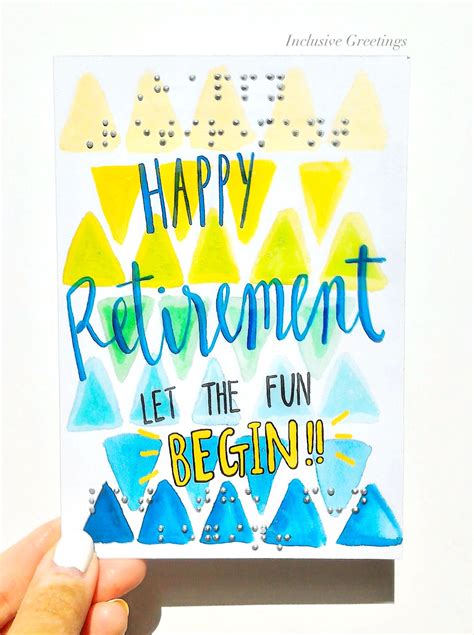 Inclusive Greetings
HAPPY
Retirement
LET THE FUN
BEGIN!!